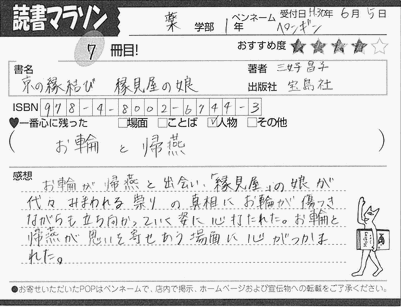 読書マラソン 薬 学部 1 年 ペンネーム ペンギン 受付日 H30年 6月 5日
7 冊目! おすすめ度 ★★★★☆
書名 京の縁結び 縁見屋の娘 著者 三好昌子
出版社 宝島社
ISBN 978-4-8002-6744-3
♥一番心に残った □場面 □ことば ☑人物 □その他
( お輪 と 帰燕 )
感想
お輪が帰燕と出会い、「縁見屋」の娘が
代々みまわれる祟りの真相にお輪が傷つき
ながらも立ち向かっていく姿に心打たれた。お輪と
帰燕が思いを寄せあう場面に心がつかま
れた。
●お寄せいただいたPOPはペンネームで、店内で掲示、ホームページおよび宣伝物への転載をご了承ください。